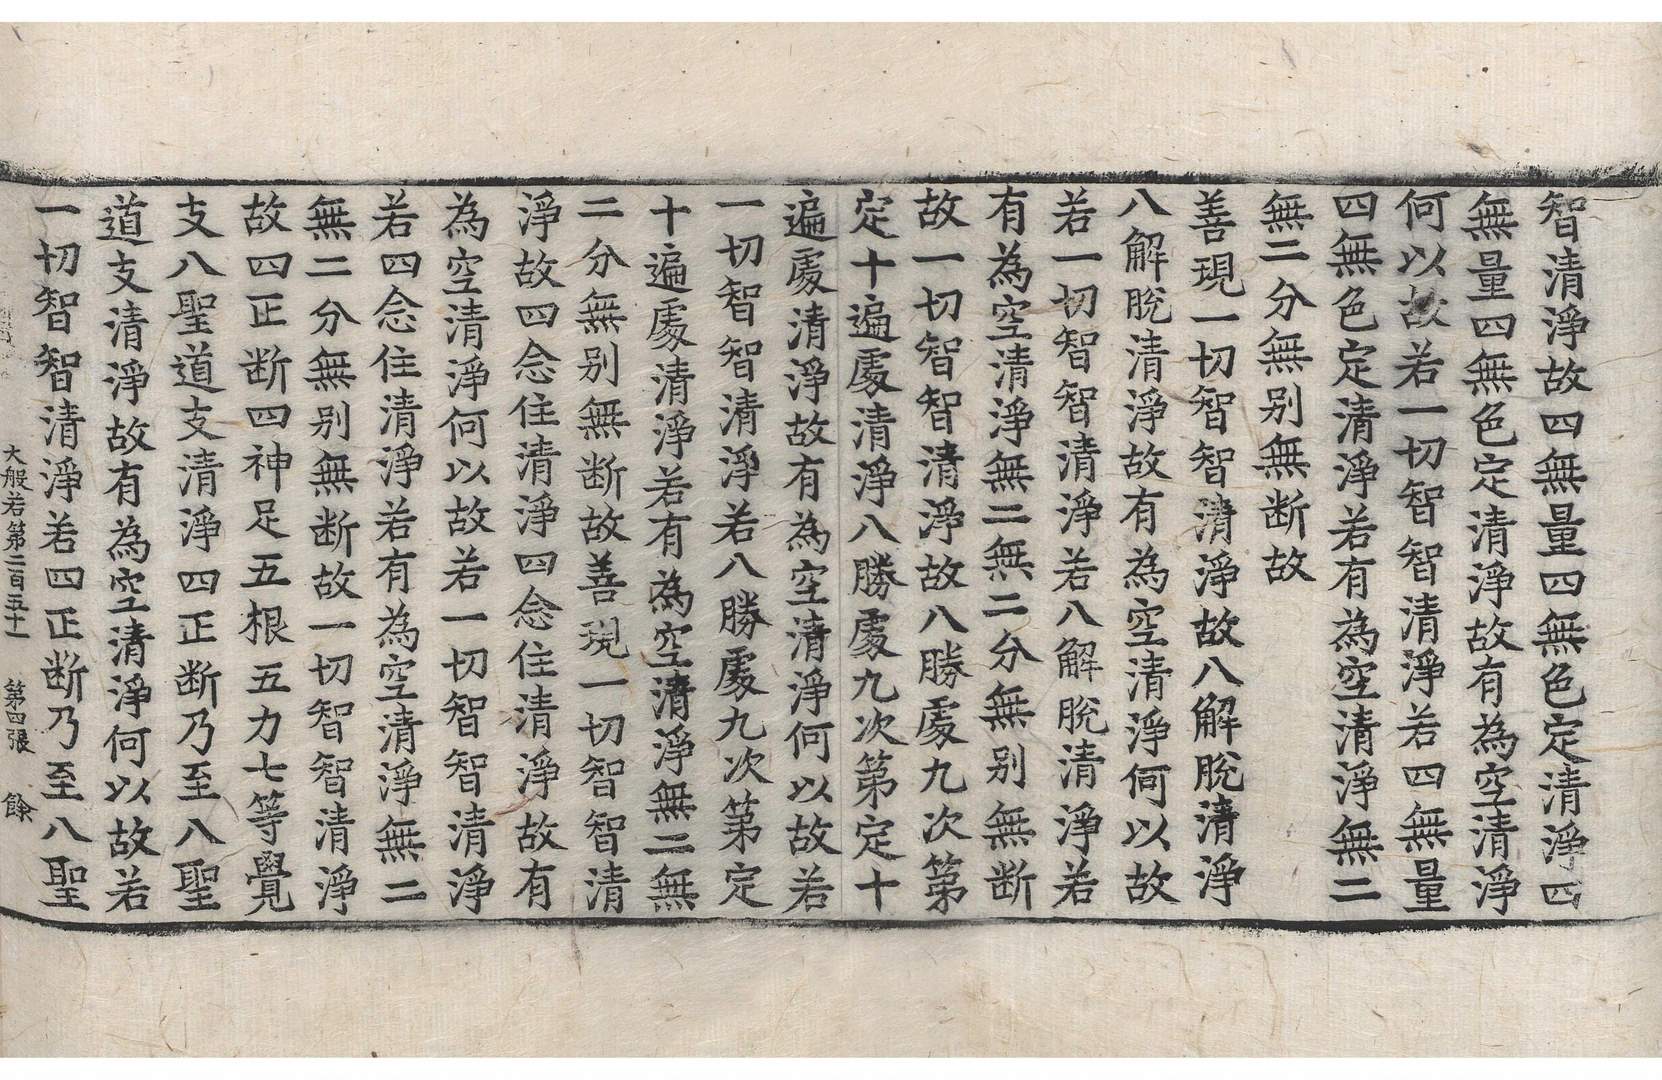 智清淨故四無量四無色定清淨四
無量四無色定清淨故有為空清淨
何以故若一切智智清淨若四無量
四無色定清淨若有為空清淨無二
無二分無別無断故
善現一切智智清淨故八解脫清淨
八解脫清淨故有為空清淨何以故
若一切智智清淨若八解脫清淨若
有為空清淨無二無二分無別無断
故一切智智清淨故八勝處九次第
定十遍處清淨八勝處九次第定十
遍處清淨故有為空清淨何以故若
一切智智清淨若八勝處九次第定
十遍處清淨若有為空清淨無二無
二分無別無断故善現一切智智清
淨故四念住清淨四念住清淨故有
為空清淨何以故若一切智智清淨
若四念住清淨若有為空清淨無二
無二分無別無断故一切智智清淨
故四正断四神足五根五力七等覺
支八聖道支清淨四正断乃至八聖
道支清淨故有為空清淨何以故若
一切智智清淨若四正断乃至八聖
大般若第二百五十一 第四張 餘